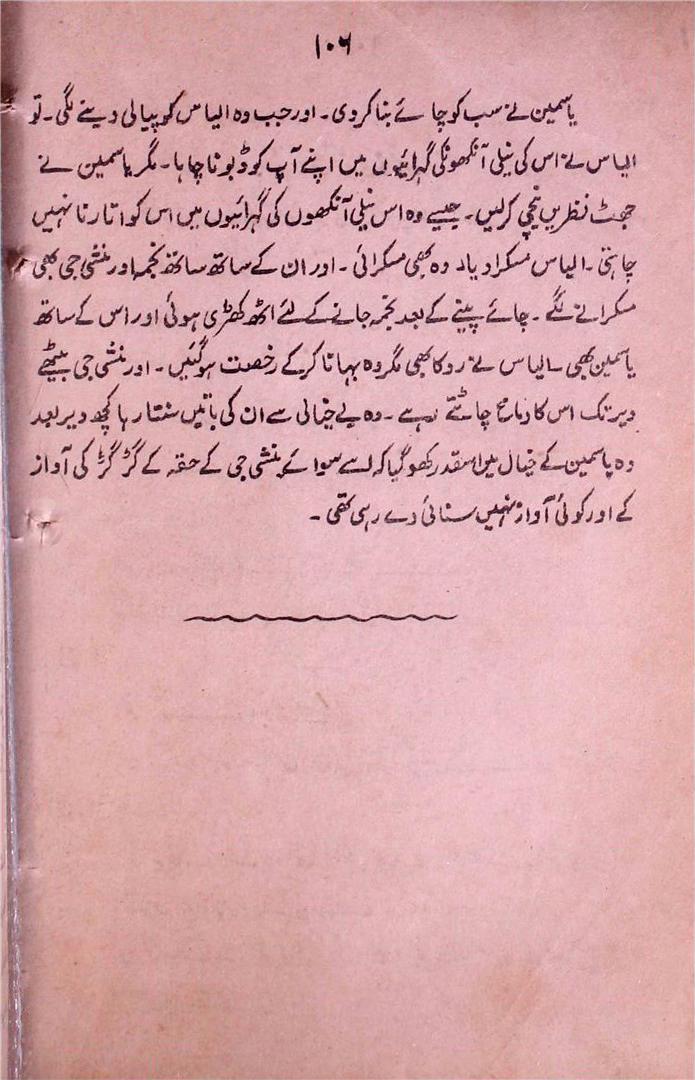 ۱۰۶
یاسمین نے سب کو چائے بنا کر دی۔ اور جب وہ الیاس کو پیالی دینے لگی۔ تو
الیاس نے اس کی نیلی آنکھونکی گہرائیوں میں اپنے آپ کو ڈبونا چاہا۔ مگر یاسمین نے
جھٹ نظریں نیچی کرلیں۔ جیسے وہ اس نیلی آنکھوں کی گہرائیوں میں اس کو اتارنا نہیں
چاہتی۔ الیاس مسکرادیا۔ وہ بھی مسکرائی۔ اور ان کے ساتھ ساتھ نجمہ اور منشی جی بھی
مسکرانے لگے۔ چائے پینے کے بعد نجمہ جانے کے لئے اٹھ کھڑی ہوئی اور اس کے ساتھ
یاسمین بھی۔ الیاس نے روکا بھی مگر وہ بہانا کرکے رخصت ہوگئیں۔ اور منشی جی بیٹھے
دیر تک اس کا دماغ چاٹتے رہے۔ وہ بے خیالی سے ان کی باتیں سنتا رہا کچھ دیر بعد
وہ یاسمین کے خیال میں اسقدر کھو گیا کہ اسے سوائے منشی جی کے حقہ کے گڑ گڑ کی آواز
کے اور کوئی آواز نہیں سنائی دے رہی تھی۔